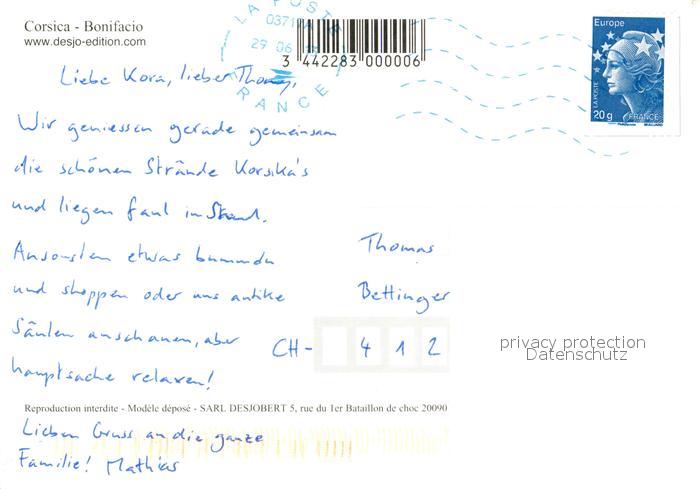 Corsica - Bonifacio
www.desjo-edition.com
LA POSTE
03717A
29 06
FRANCE
3 442283 000006
Europe
LA POSTE
20 g FRANCE
Liebe Kora, lieber Thomas,
Wir geniessen gerade gemeinsam
die schönen Strände Korsika's
und liegen faul im Sand.
Ansonsten etwas bummeln
und shoppen oder uns antike
Säulen anschauen, aber
hauptsache relaxen!
Thomas
Bettinger
CH- 4 1 2
privacy protection
Datenschutz
Reproduction interdite - Modèle déposé - SARL DESJOBERT 5, rue du 1er Bataillon de choc 20090
Lieben Gruss an die ganze
Familie! Mathias